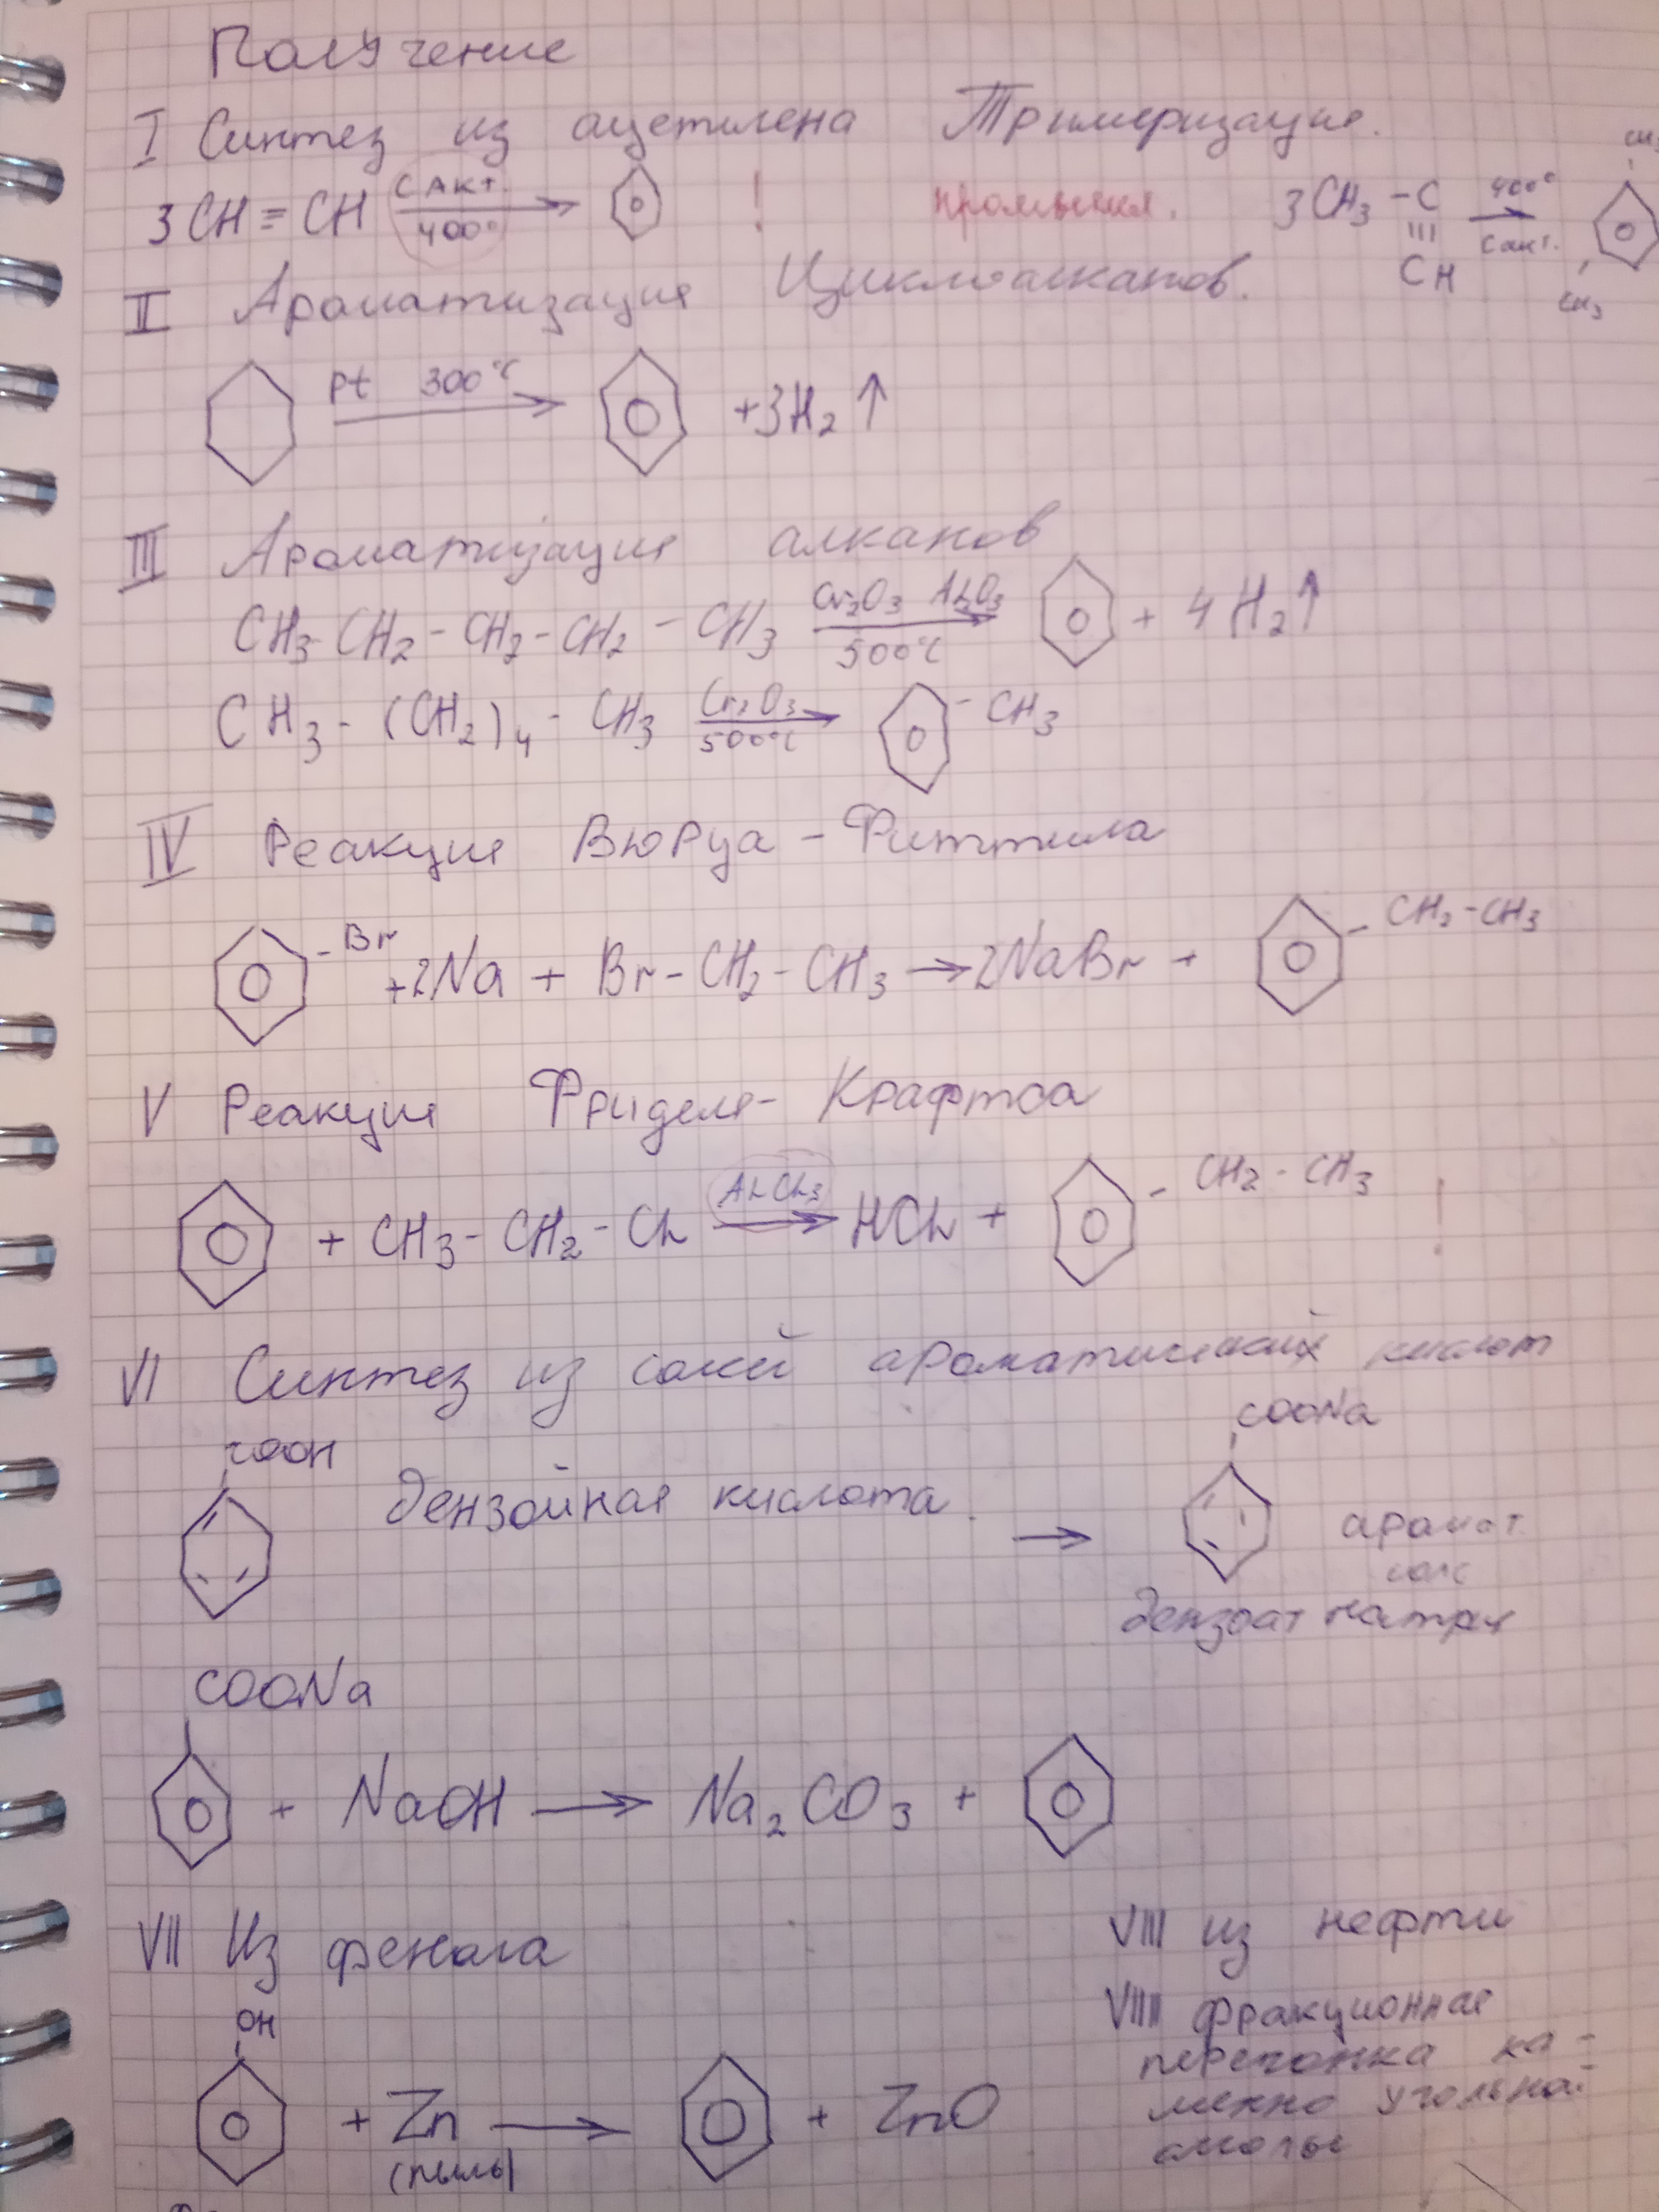 Получение
I Синтез из ацетилена Тримеризация.
3CH≡CH C акт. 400° ! промышл. 3CH3-C≡CH 400° C акт. CH3 CH3
II Ароматизация Циклоалканов.
Pt 300°C +3H2↑
III Ароматизация алканов
CH3-CH2-CH2-CH2-CH3 Cr2O3 Al2O3 500°C + 4H2↑
CH3-(CH2)4-CH3 Cr2O3 500°C -CH3
IV Реакция Вюрца-Фиттила
-Br +2Na + Br-CH2-CH3 → 2NaBr + -CH2-CH3
V Реакция Фриделя-Крафтса
+ CH3-CH2-Cl AlCl3 → HCl + -CH2-CH3 !
VI Синтез из солей ароматических кислот
COOH бензойная кислота → COONa аромат. соль
бензоат натрия
COONa
+ NaOH → Na2CO3 +
VII Из фенола
OH
+ Zn → + ZnO
(пыль)
VIII из нефти
VIIII фракционная
перегонка ка-
менно угольной
смолы